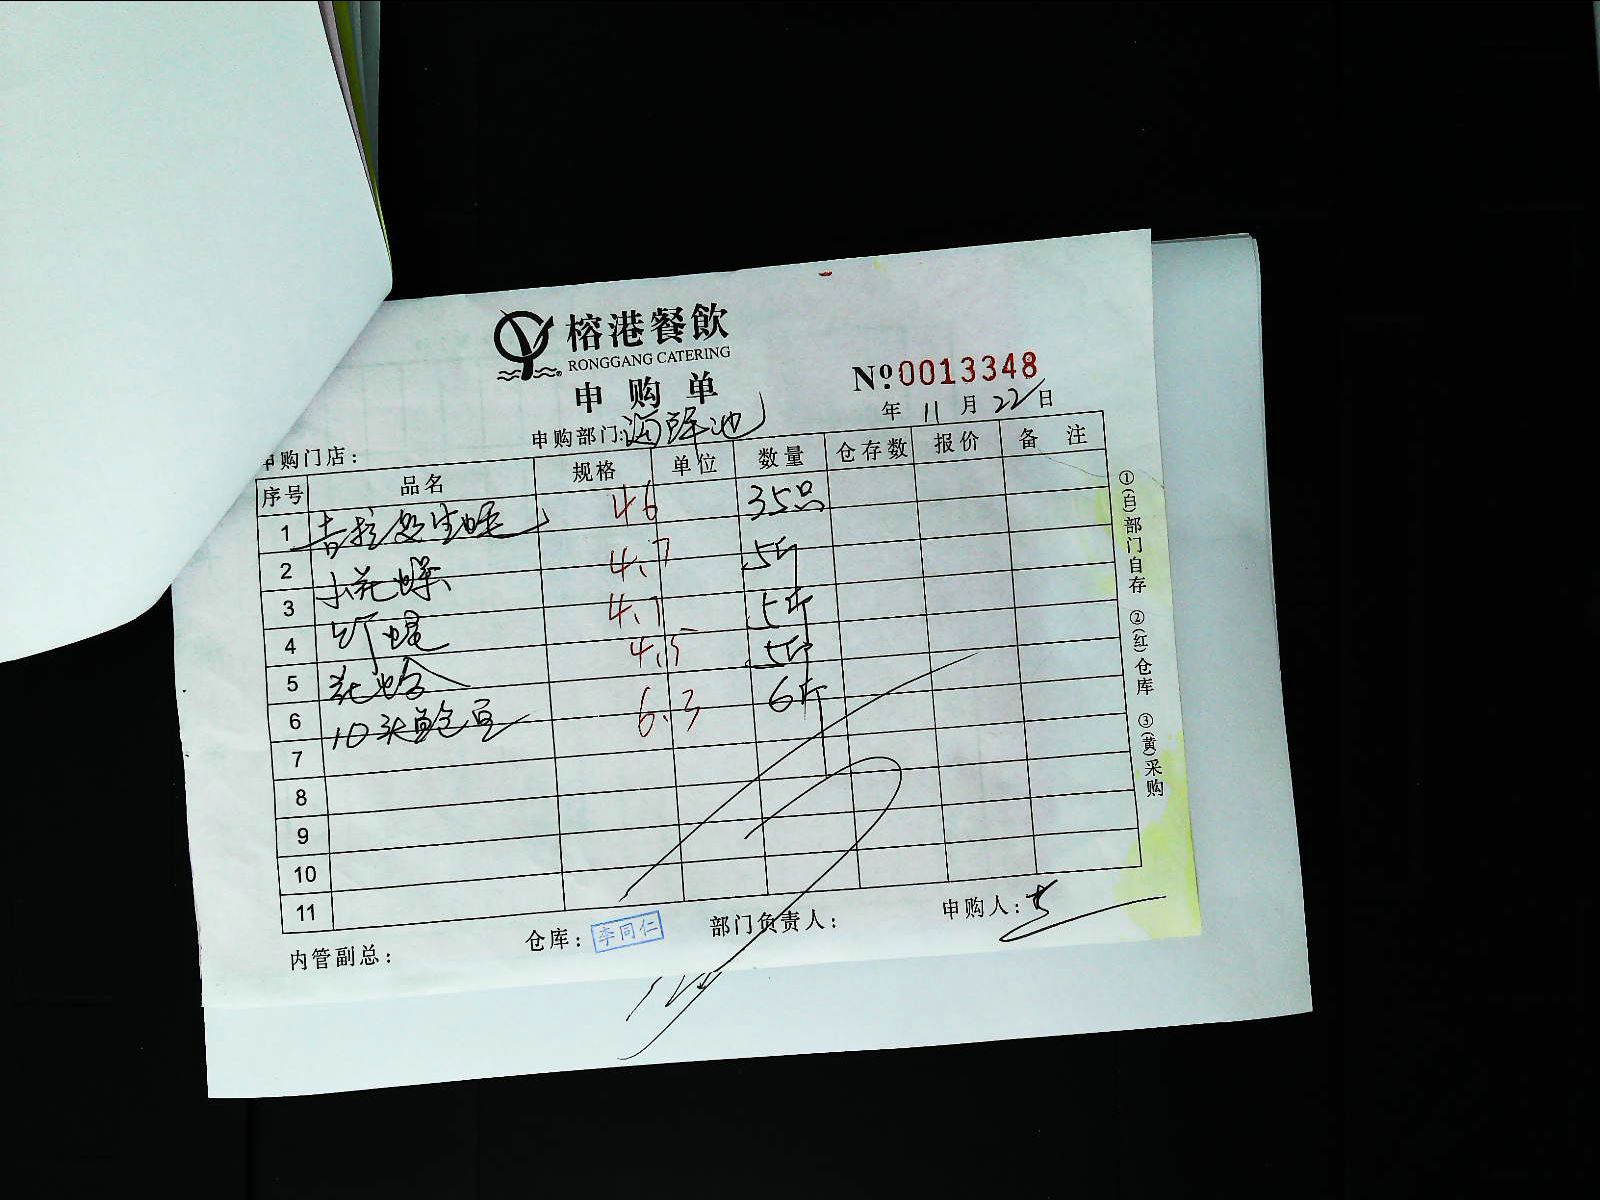 榕港餐飲
RONGGANG CATERING
申购单
№ 0013348
年 11 月 22 日
申购门店： 申购部门：海鲜池
序号 品名 规格 单位 数量 仓存数 报价 备注
1 吉拉多生蚝 46 35只
2 小花螺 4.7 5斤
3 4.1 5斤
4 花蛤 4.5 5斤
5 10头鲍鱼 6.3 6斤
6
7
8
9
10
11
内管副总： 仓库：李同仁 部门负责人： 申购人：
①(白)部门自存 ②(红)仓库 ③(黄)采购